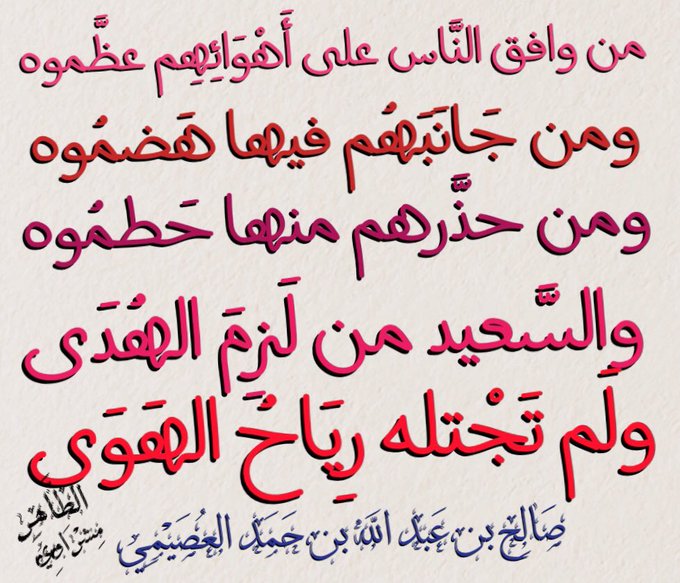 من وافق النَّاس على أَهْوَائِهِم عظَّموه
ومن جَانَبَهُم فيها هَضمُوه
ومن حذَّرهم منها حَطمُوه
والسَّعيد من لَزِمَ الهُدَى
ولَم تَجْتله رِيَاحُ الهَوَى
صَالِح بن عَبد اللَّه بن حَمَد العُصَيْمِي
الطَّاهِر